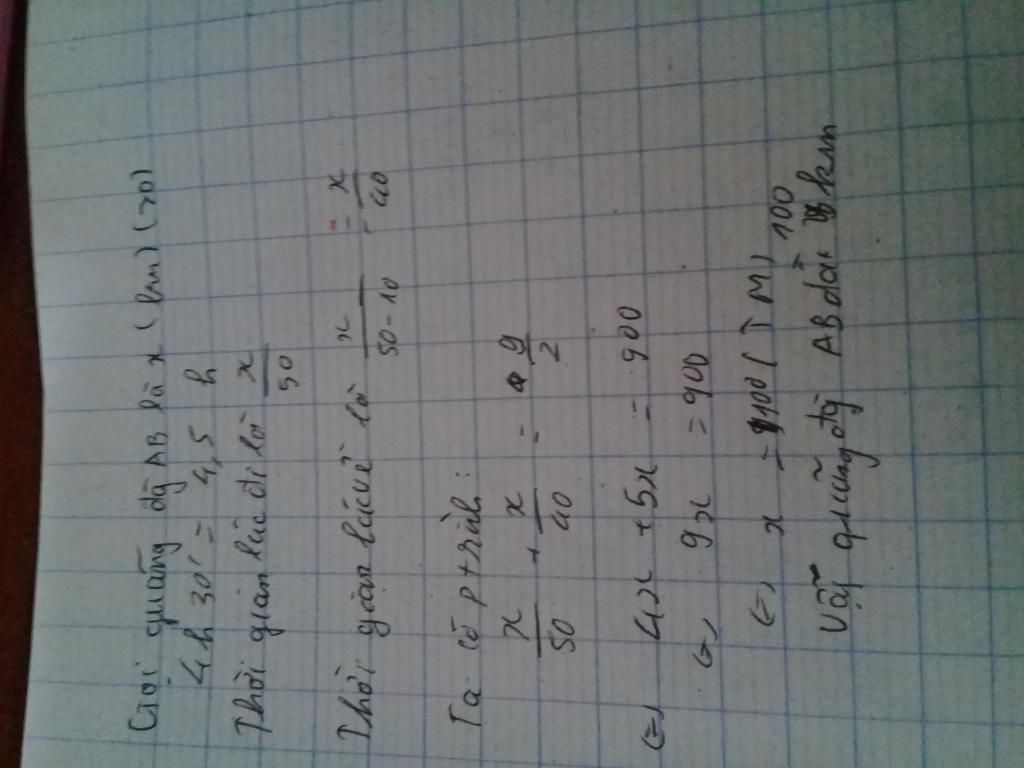 Gọi quãng đg AB là x (km) (>0)
4h 30' = 4,5 h
Thời gian lúc đi là x/50
Thời gian lúc về là x/50-10 = x/40
Ta có p+rình:
x/50 + x/40 = 9/2
(=) 4x + 5x = 900
(=) 9x = 900
(=) x = 100 (TM)
Vậy quãng đg AB dài 100 km